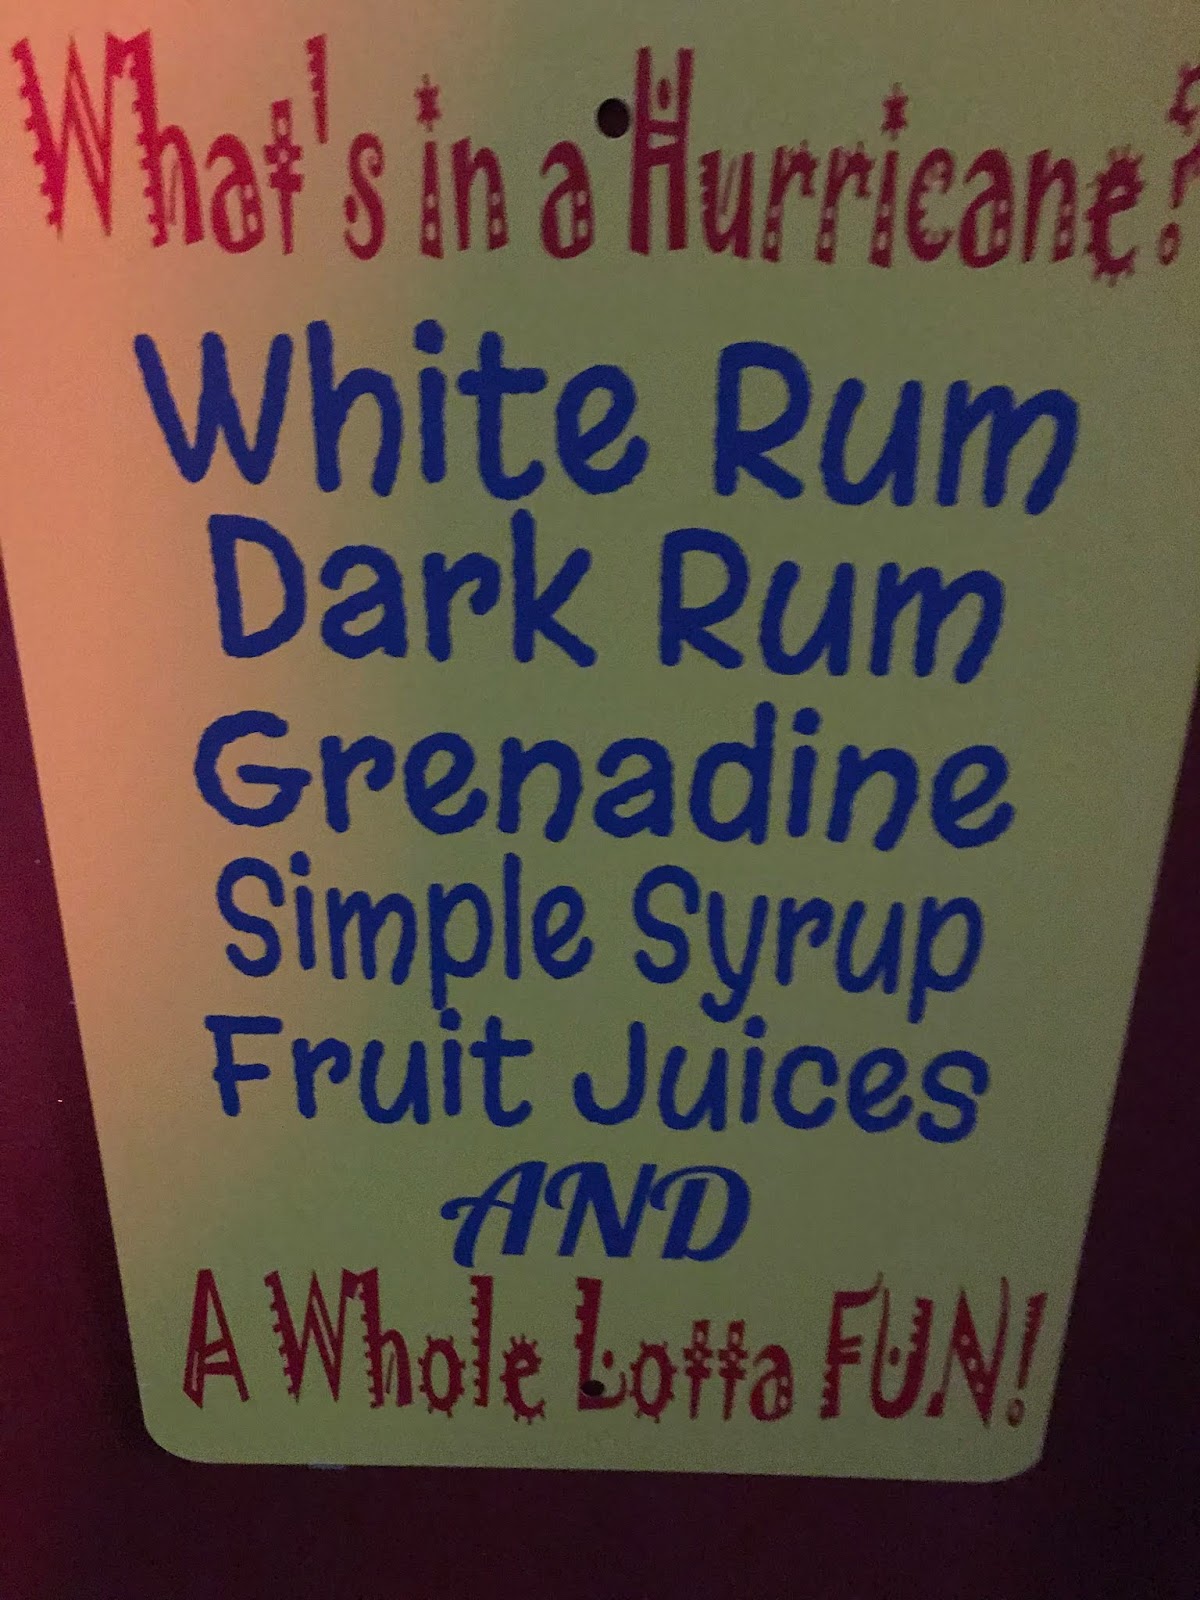 What's in a Hurricane?
White Rum
Dark Rum
Grenadine
Simple Syrup
Fruit Juices
AND
A Whole Lotta FUN!